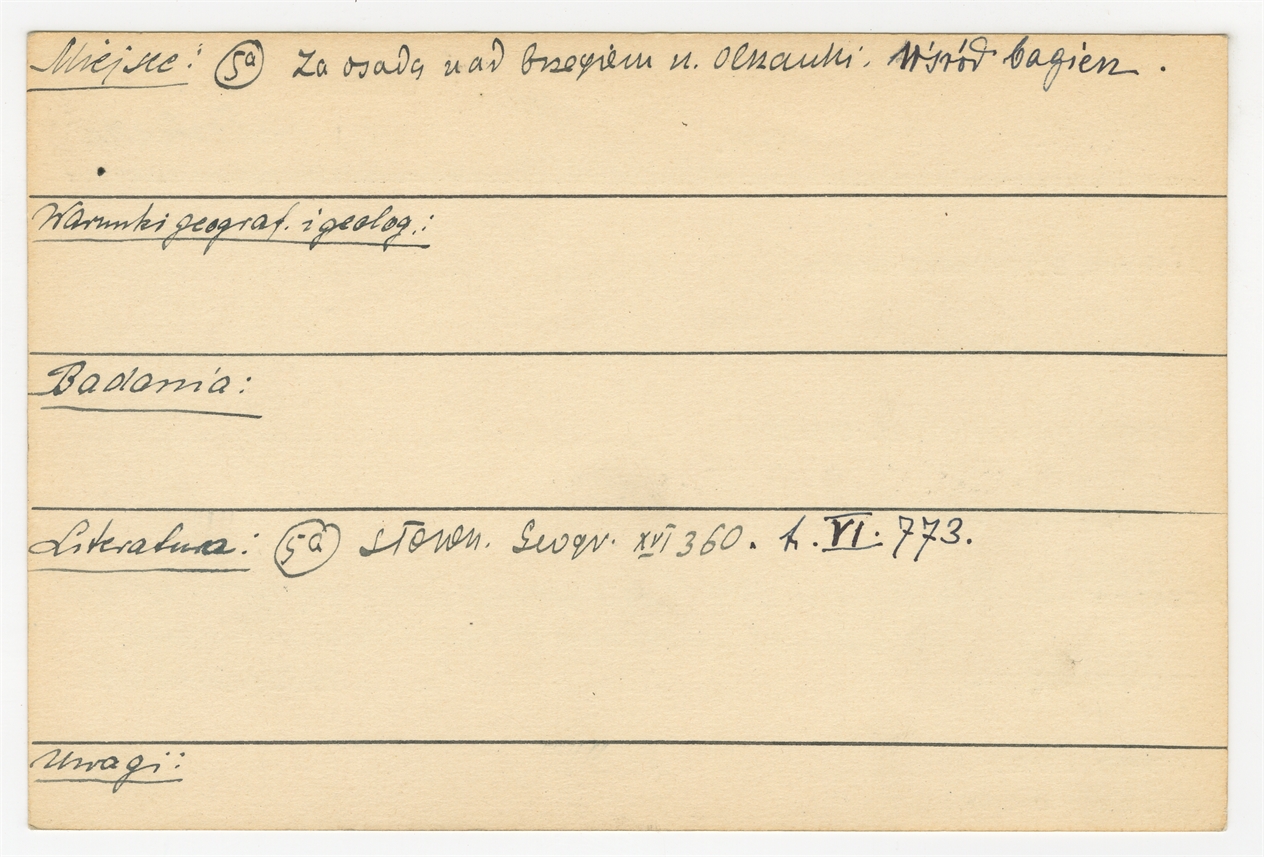 Miejsce: 5a Za osadą nad brzegiem rz. Olszanki. Wśród bagien.
Warunki geograf. i geolog.:
Badania:
Literatura: 5a Słown. Geogr. XVI 360. t. VI. 773.
Uwagi: